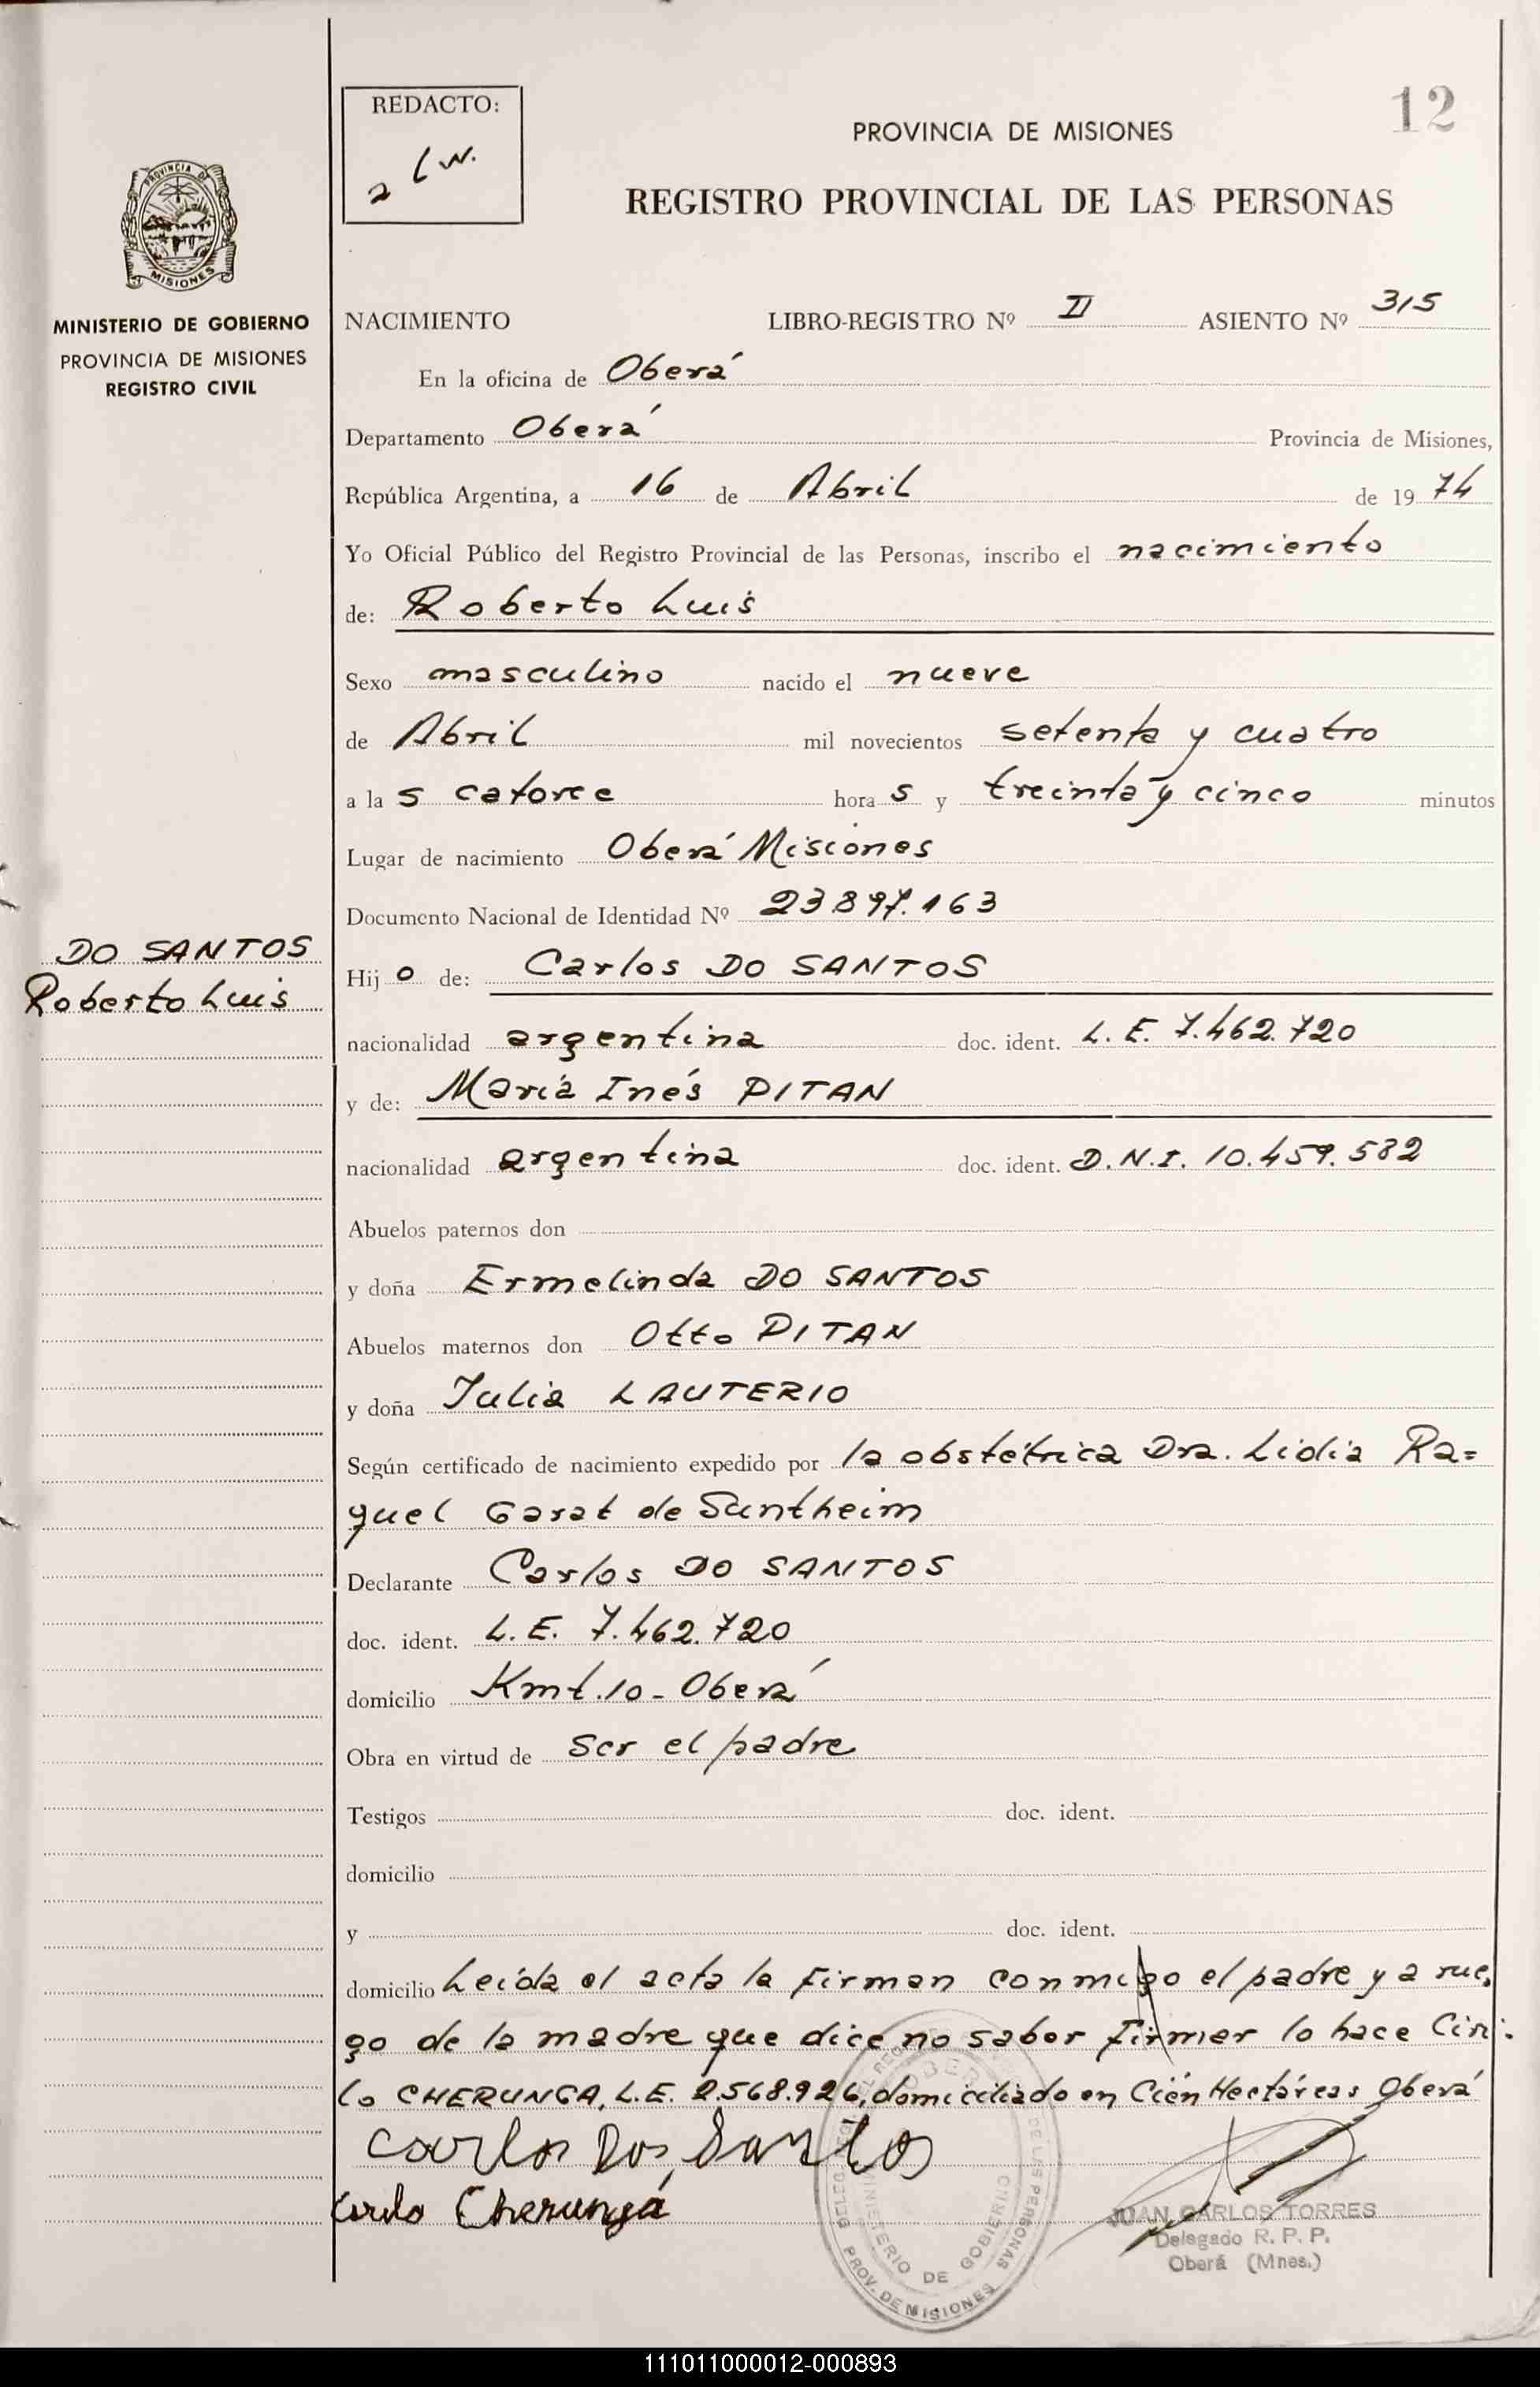 REDACTO:
12
PROVINCIA DE MISIONES
REGISTRO PROVINCIAL DE LAS PERSONAS
PROVINCIA DE
MISIONES
MINISTERIO DE GOBIERNO
PROVINCIA DE MISIONES
REGISTRO CIVIL
NACIMIENTO LIBRO-REGISTRO Nº II ASIENTO Nº 315
En la oficina de Oberá
Departamento Oberá Provincia de Misiones,
República Argentina, a 16 de Abril de 1974
Yo Oficial Público del Registro Provincial de las Personas, inscribo el nacimiento
de: Roberto Luis
Sexo masculino nacido el nueve
de Abril mil novecientos setenta y cuatro
a la s catorce hora s y treinta y cinco minutos
Lugar de nacimiento Oberá Misiones
Documento Nacional de Identidad Nº 23897.163
DO SANTOS
Roberto Luis
Hij o de: Carlos DO SANTOS
nacionalidad argentina doc. ident. L. E. 7.462.720
y de: María Inés PITAN
nacionalidad argentina doc. ident. D.N.I. 10.459.582
Abuelos paternos don
y doña Ermelinda DO SANTOS
Abuelos maternos don Otto PITAN
y doña Julia LAUTERIO
Según certificado de nacimiento expedido por la obstétrica Dra. Lidia Ra=
quel Garat de Suntheim
Declarante Carlos DO SANTOS
doc. ident. L.E. 7.462.720
domicilio Kmt.10- Oberá
Obra en virtud de ser el padre
Testigos doc. ident.
domicilio
y doc. ident.
domicilio Leída el acta la firman conmigo el padre y a rue,
go de la madre que dice no saber firmar lo hace Ciri:
lo CHERUNGA, L.E. 2.568.926, domiciliado en Cién Hectáreas Oberá
Carlos Dos Santos
Cirilo Cherunga
MINISTERIO DE GOBIERNO
PROV. DE MISIONES
JUAN CARLOS TORRES
Delegado R. P. P.
Oberá (Mnes.)
111011000012-000893